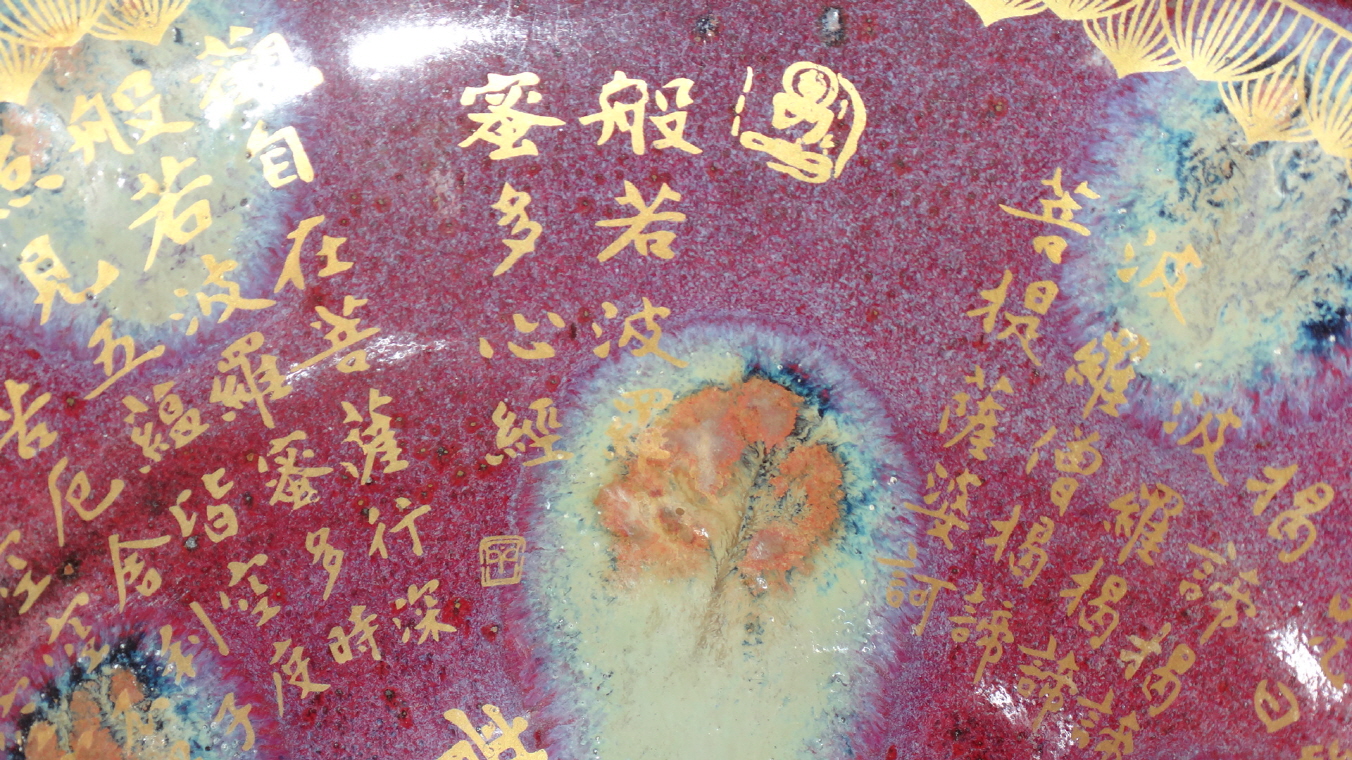 般若波羅
蜜多心經
觀自在菩薩行深
般若波羅蜜多時
照見五蘊皆空度
苦厄舍利子
曰
揭諦揭諦
波羅揭諦
波羅僧揭諦
菩提薩婆訶